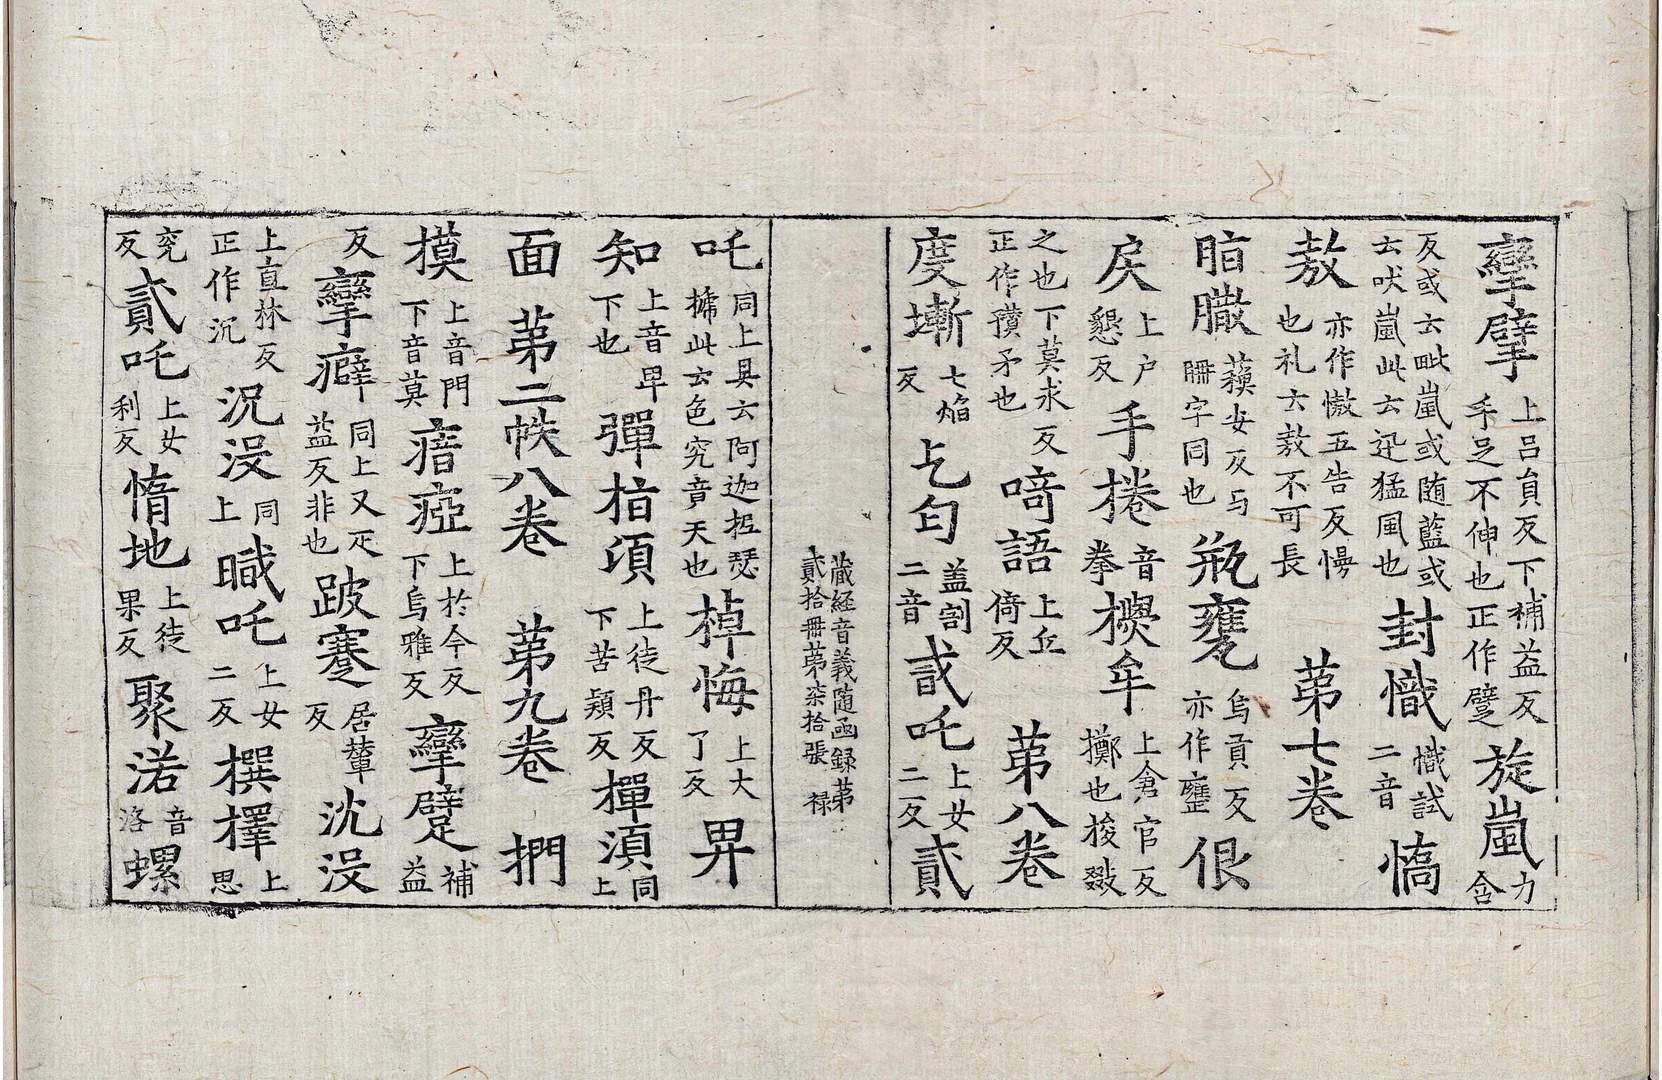 攣躄上吕負反下補益反手足不伸也正作躄旋嵐力含
反或云毗嵐或随藍或云吠嵐此云迅猛風也封幟幟試二音憍
敖亦作慠五告反慢也礼云敖不可長第七卷
脂𦠿蘓安反与𦙱字同也瓶甕烏貢反亦作罋佷
戾上户懇反手捲音拳攅牟上倉官反擲也梭敠
之也下莫求反正作穳矛也㗨語上丘倚反第八卷
度塹七焰反乞匄盖割二音貳吒上女二反貳
蔵経音義随函録第貳拾冊第柒拾張 禄
吒同上具云阿迦抳瑟㨖此云色究竟天也棹悔上大了反畀
知上音毘下也彈指湏上徒丹反下苦潁反揮湏同上
面 第二帙八卷 第九卷 捫
摸上音門下音莫瘖瘂上於今反下烏雅反攣躄補益
反攣癖同上又疋益反非也跛蹇居輦反沈没
上直林反正作沉況没同上膱吒上女二反撰擇上思
兖反貳吒上女利反惰地上徒果反聚渃音洛螺